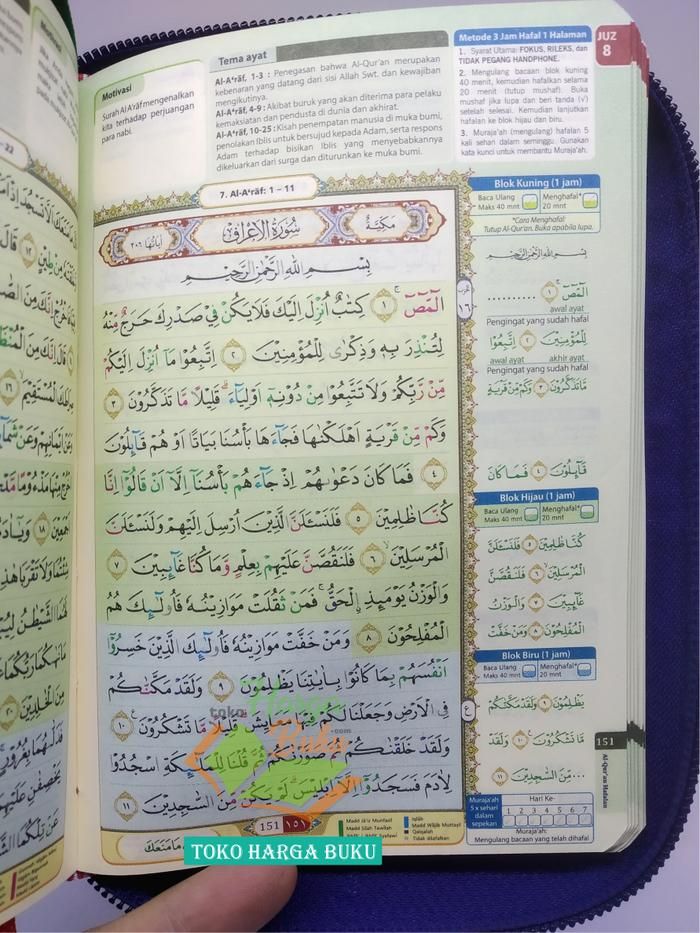 Motivasi
Surah Al A'rāf mengenalkan
kita terhadap perjuangan
para nabi.
Tema ayat
Al-A'rāf, 1-3 : Penegasan bahwa Al-Qur'an merupakan
kebenaran yang datang dari sisi Allah Swt. dan kewajiban
mengikutinya.
Al-A'rāf, 4-9 : Akibat buruk yang akan diterima para pelaku
kemaksiatan dan pendusta di dunia dan akhirat.
Al-A'rāf, 10-25 : Kisah penempatan manusia di muka bumi,
penolakan Iblis untuk bersujud kepada Adam, serta respons
Adam terhadap bisikan Iblis yang menyebabkannya
dikeluarkan dari surga dan diturunkan ke muka bumi.
Metode 3 Jam Hafal 1 Halaman
1. Syarat Utama: FOKUS, RILEKS, dan
TIDAK PEGANG HANDPHONE.
2. Mengulang bacaan blok kuning
40 menit, kemudian hafalkan selama
20 menit (tutup mushaf). Buka
mushaf jika lupa dan beri tanda (√)
setelah selesai. Kemudian lanjutkan
hafalan ke blok hijau dan biru.
3. Muraja'ah (mengulang) hafalan 5
kali sehari dalam seminggu. Gunakan
kata kunci untuk membantu Muraja'ah.
JUZ
8
7. Al-A'rāf: 1 – 11
مَكِّيَّةٌ سُوْرَةُ الْاَعْرَافِ اٰيَاتُهَا ٢٠٦
بِسْمِ اللّٰهِ الرَّحْمٰنِ الرَّحِيْمِ
الۤمّۤصۤ ۚ ١ كِتٰبٌ اُنْزِلَ اِلَيْكَ فَلَا يَكُنْ فِيْ صَدْرِكَ حَرَجٌ مِّنْهُ
لِتُنْذِرَ بِهٖ وَذِكْرٰى لِلْمُؤْمِنِيْنَ ٢ اِتَّبِعُوْا مَآ اُنْزِلَ اِلَيْكُمْ
مِّنْ رَّبِّكُمْ وَلَا تَتَّبِعُوْا مِنْ دُوْنِهٖٓ اَوْلِيَاۤءَ ۗ قَلِيْلًا مَّا تَذَكَّرُوْنَ ٣
وَكَمْ مِّنْ قَرْيَةٍ اَهْلَكْنٰهَا فَجَاۤءَهَا بَأْسُنَا بَيَاتًا اَوْ هُمْ قَاۤىِٕلُوْنَ
٤ فَمَا كَانَ دَعْوٰىهُمْ اِذْ جَاۤءَهُمْ بَأْسُنَآ اِلَّآ اَنْ قَالُوْٓا اِنَّا
كُنَّا ظٰلِمِيْنَ ٥ فَلَنَسْـَٔلَنَّ الَّذِيْنَ اُرْسِلَ اِلَيْهِمْ وَلَنَسْـَٔلَنَّ
الْمُرْسَلِيْنَ ۙ ٦ فَلَنَقُصَّنَّ عَلَيْهِمْ بِعِلْمٍ وَّمَا كُنَّا غَاۤىِٕبِيْنَ ٧
وَالْوَزْنُ يَوْمَىِٕذِ ِۨالْحَقُّۚ فَمَنْ ثَقُلَتْ مَوَازِيْنُهٗ فَاُولٰۤىِٕكَ هُمُ
الْمُفْلِحُوْنَ ٨ وَمَنْ خَفَّتْ مَوَازِيْنُهٗ فَاُولٰۤىِٕكَ الَّذِيْنَ خَسِرُوْٓا
اَنْفُسَهُمْ بِمَا كَانُوْا بِاٰيٰتِنَا يَظْلِمُوْنَ ٩ وَلَقَدْ مَكَّنّٰكُمْ
فِى الْاَرْضِ وَجَعَلْنَا لَكُمْ فِيْهَا مَعَايِشَۗ قَلِيْلًا مَّا تَشْكُرُوْنَ ࣖ ١٠
وَلَقَدْ خَلَقْنٰكُمْ ثُمَّ صَوَّرْنٰكُمْ ثُمَّ قُلْنَا لِلْمَلٰۤىِٕكَةِ اسْجُدُوْا
لِاٰدَمَ فَسَجَدُوْٓا اِلَّآ اِبْلِيْسَۗ لَمْ يَكُنْ مِّنَ السّٰجِدِيْنَ ١١
151 ١٥١
Blok Kuning (1 jam)
Baca Ulang Menghafal*
Maks 40 mnt 20 mnt
*Cara Menghafal:
Tutup Al-Qur'an. Buka apabila lupa.
بِسْمِ اللّٰهِ الرَّحْمٰنِ الرَّحِيْمِ
الۤمّۤصۤ ۚ ١ ..........
awal ayat
Pengingat yang sudah hafal
لِلْمُؤْمِنِيْنَ ٢ اِتَّبِعُوْا
awal ayat akhir ayat
Pengingat yang sudah hafal
مَّا تَذَكَّرُوْنَ ٣ وَكَمْ مِّنْ قَرْيَةٍ
قَاۤىِٕلُوْنَ ٤ فَمَا كَانَ
Blok Hijau (1 jam)
Baca Ulang Menghafal*
Maks 40 mnt 20 mnt
كُنَّا ظٰلِمِيْنَ ٥ فَلَنَسْـَٔلَنَّ
الْمُرْسَلِيْنَ ۙ ٦ فَلَنَقُصَّنَّ
غَاۤىِٕبِيْنَ ٧ وَالْوَزْنُ
الْمُفْلِحُوْنَ ٨ وَمَنْ خَفَّتْ
Blok Biru (1 jam)
Baca Ulang Menghafal*
Maks 40 mnt 20 mnt
يَظْلِمُوْنَ ٩ وَلَقَدْ مَكَّنّٰكُمْ
مَّا تَشْكُرُوْنَ ࣖ ١٠ وَلَقَدْ
...مِّنَ السّٰجِدِيْنَ ١١
151
Al-Qur'an Hafalan
Muraja'ah
5 x sehari
dalam
sepekan
Hari Ke-
1 2 3 4 5 6 7
Muraja'ah:
Mengulang bacaan yang telah dihafal
toko
Harga
Buku
.com
TOKO HARGA BUKU